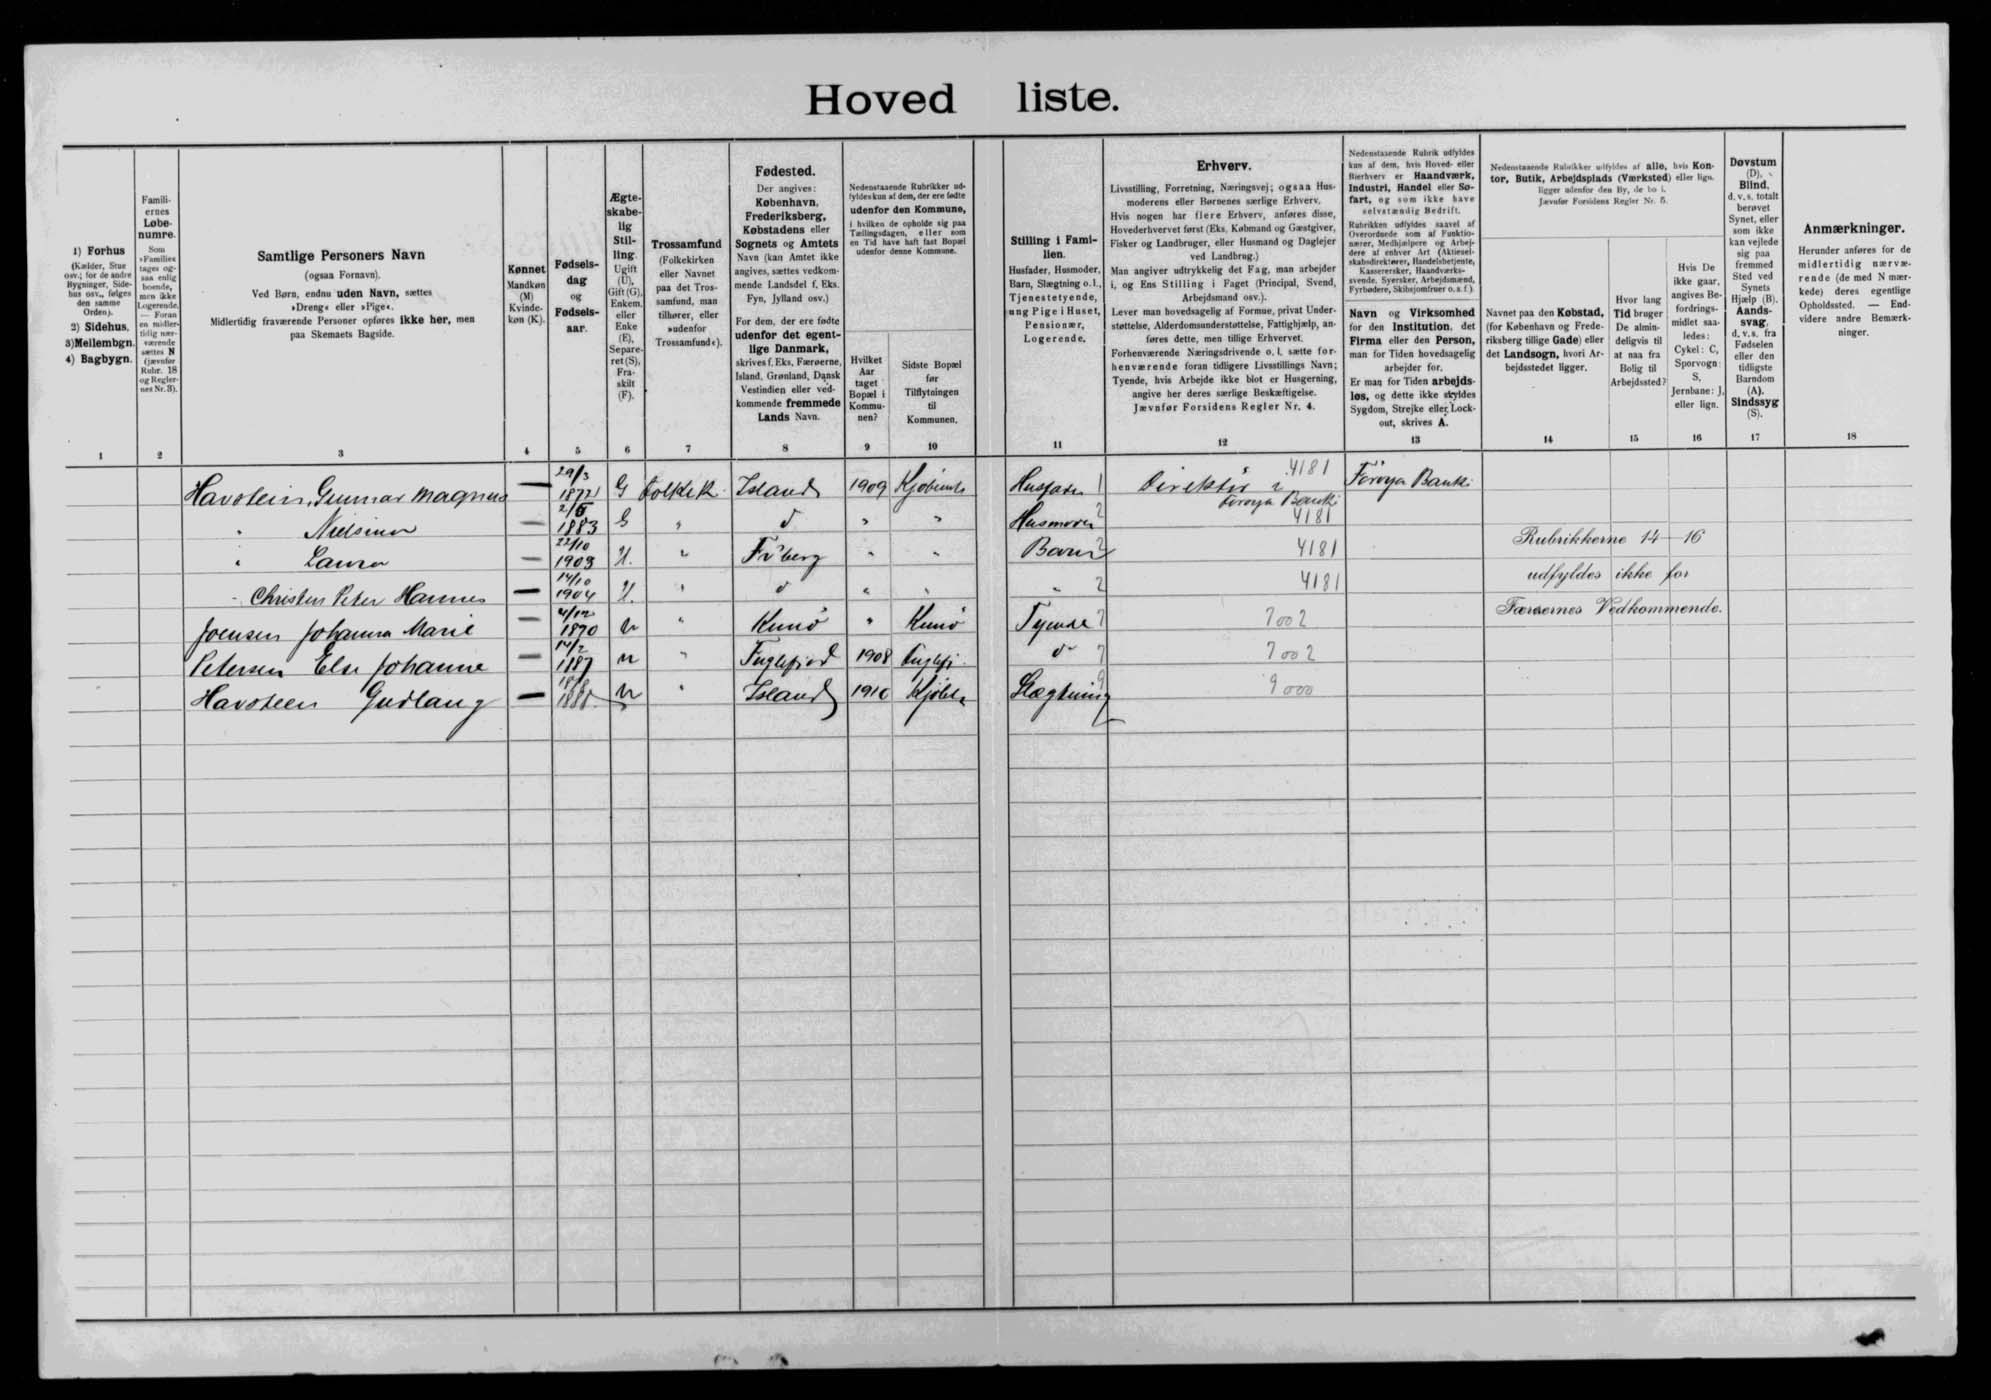 Hovedliste.
1) Forhus
(Kælder, Stue
osv.; for de andre
Bygninger, Side-
hus osv., følges
den samme
Orden).
2) Sidehus.
3) Mellembgn.
4) Bagbygn.
1
Famili-
ernes
Løbe-
numre.
Som
»Familie«
tages og-
saa enlig
boende,
men ikke
Logerende.
— Foran
en midler-
tidig nær-
værende
sættes N
(jævnfør
Rubr. 18
og Regler-
nes Nr. 3).
2
Samtlige Personers Navn
(ogsaa Fornavn).
Ved Børn, endnu uden Navn, sættes
»Dreng« eller »Pige«.
Midlertidig fraværende Personer opføres ikke her, men
paa Skemaets Bagside.
3
Kønnet
Mandkøn
(M)
Kvinde-
køn (K).
4
Fødsels-
dag
og
Fødsels-
aar.
5
Ægte-
skabe-
lig
Stil-
ling.
Ugift
(U),
Gift (G),
Enkem.
eller
Enke
(E),
Separe-
ret (S),
Fra-
skilt
(F).
6
Trossamfund
(Folkekirken
eller Navnet
paa det Tros-
samfund, man
tilhører, eller
»udenfor
Trossamfund«).
7
Fødested.
Der angives:
København,
Frederiksberg,
Købstadens eller
Sognets og Amtets
Navn (kan Amtet ikke
angives, sættes vedkom-
mende Landsdel f. Eks.
Fyn, Jylland osv.)
For dem, der ere fødte
udenfor det egent-
lige Danmark,
skrives f. Eks. Færøerne,
Island, Grønland, Dansk
Vestindien eller ved-
kommende fremmede
Lands Navn.
8
Nedenstaaende Rubrikker ud-
fyldes kun af dem, der ere fødte
udenfor den Kommune,
i hvilken de opholde sig paa
Tællingsdagen, eller som
en Tid have haft fast Bopæl
udenfor denne Kommune.
Hvilket
Aar
taget
Bopæl i
Kommu-
nen?
9
Sidste Bopæl
før
Tilflytningen
til
Kommunen.
10
Stilling i Fami-
lien.
Husfader, Husmoder,
Barn, Slægtning o. l.,
Tjenestetyende,
ung Pige i Huset,
Pensionær,
Logerende.
11
Erhverv.
Livsstilling, Forretning, Næringsvej; ogsaa Hus-
moderens eller Børnenes særlige Erhverv.
Hvis nogen har flere Erhverv, anføres disse,
Hovederhvervet først (Eks. Købmand og Gæstgiver,
Fisker og Landbruger, eller Husmand og Daglejer
ved Landbrug.)
Man angiver udtrykkelig det Fag, man arbejder
i, og Ens Stilling i Faget (Principal, Svend,
Arbejdsmand osv.).
Lever man hovedsagelig af Formue, privat Under-
støttelse, Alderdomsunderstøttelse, Fattighjælp, an-
føres dette, men tillige Erhvervet.
Forhenværende Næringsdrivende o. l. sætte for-
henværende foran tidligere Livsstillings Navn;
Tyende, hvis Arbejde ikke blot er Husgerning,
angive her deres særlige Beskæftigelse.
Jævnfør Forsidens Regler Nr. 4.
12
Nedenstaaende Rubrik udfyldes
kun af dem, hvis Hoved- eller
Bierhverv er Haandværk,
Industri, Handel eller Sø-
fart, og som ikke have
selvstændig Bedrift.
Rubrikken udfyldes saavel af
Overordnede som af Funktio-
nærer, Medhjælpere og Arbej-
dere af enhver Art (Aktiesel-
skabsdirektører, Handelsbetjente,
Kassererskér, Haandværks-
svende, Syersker, Arbejdsmænd,
Fyrbødere, Skibsjomfruer o. s. f.).
Navn og Virksomhed
for den Institution, det
Firma eller den Person,
man for Tiden hovedsagelig
arbejder for.
Er man for Tiden arbejds-
løs, og dette ikke skyldes
Sygdom, Strejke eller Lock-
out, skrives A.
13
Nedenstaaende Rubrikker udfyldes af alle, hvis Kon-
tor, Butik, Arbejdsplads (Værksted) eller lign.
ligger udenfor den By, de bo i.
Jævnfør Forsidens Regler Nr. 5.
Navnet paa den Købstad,
(for København og Frede-
riksberg tillige Gade) eller
det Landsogn, hvori Ar-
bejdsstedet ligger.
14
Hvor lang
Tid bruger
De almin-
deligvis til
at naa fra
Bolig til
Arbejdssted?
15
Hvis De
ikke gaar,
angives Be-
fordrings-
midlet saa-
ledes:
Cykel: C,
Sporvogn:
S,
Jernbane: J,
eller lign.
16
Døvstum
(D).
Blind,
d. v. s. totalt
berøvet
Synet, eller
som ikke
kan vejlede
sig paa
fremmed
Sted ved
Synets
Hjælp (B).
Aands-
svag,
d. v. s. fra
Fødselen
eller den
tidligste
Barndom
(A).
Sindssyg
(S).
17
Anmærkninger.
Herunder anføres for de
midlertidig nærvæ-
rende (de med N mær-
kede) deres egentlige
Opholdssted. — End-
videre andre Bemærk-
ninger.
18
Havstein, Gunnar Magnus — 29/3 1872 G Folkek. Island 1909 Kjøbenh Husfader 1 Direktør i Føroya Banki 4181 Føroya Banki
" Nielsina — 1883 G " d " " Husmoder 2 4181
" Laura — 22/10 1903 U. " Frberg " " Barn 2 4181
" Christen Peter Hannes — 14/10 1904 U. " d " " " 2 4181
Joensen Johanna Marie — 4/12 1870 U " Kunø " Kunø Tyende 7 7002
Petersen Else Johanne — 14/2 1887 U " Fuglefjord 1908 Fuglefj. d 7 7002
Havsteen Gudlaug — 1888 U " Island 1910 Kjøbh Slægtning 9 9000
Rubrikkerne 14—16
udfyldes ikke for
Færøernes Vedkommende.